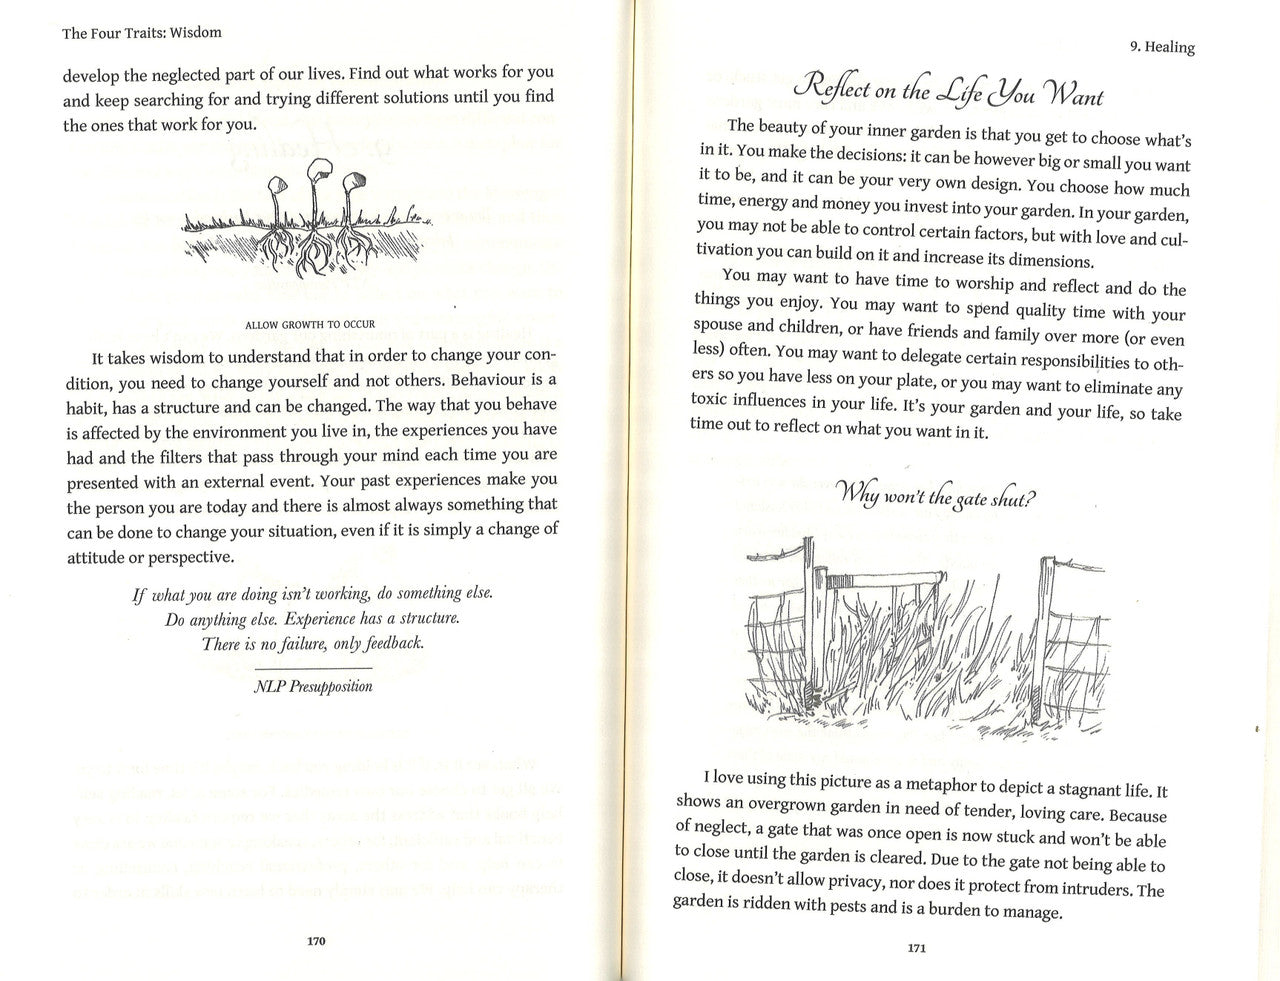 The Four Traits: Wisdom
develop the neglected part of our lives. Find out what works for you
and keep searching for and trying different solutions until you find
the ones that work for you.
ALLOW GROWTH TO OCCUR
It takes wisdom to understand that in order to change your con-
dition, you need to change yourself and not others. Behaviour is a
habit, has a structure and can be changed. The way that you behave
is affected by the environment you live in, the experiences you have
had and the filters that pass through your mind each time you are
presented with an external event. Your past experiences make you
the person you are today and there is almost always something that
can be done to change your situation, even if it is simply a change of
attitude or perspective.
If what you are doing isn't working, do something else.
Do anything else. Experience has a structure.
There is no failure, only feedback.
NLP Presupposition
170
9. Healing
Reflect on the Life You Want
The beauty of your inner garden is that you get to choose what's
in it. You make the decisions: it can be however big or small you want
it to be, and it can be your very own design. You choose how much
time, energy and money you invest into your garden. In your garden,
you may not be able to control certain factors, but with love and cul-
tivation you can build on it and increase its dimensions.
You may want to have time to worship and reflect and do the
things you enjoy. You may want to spend quality time with your
spouse and children, or have friends and family over more (or even
less) often. You may want to delegate certain responsibilities to oth-
ers so you have less on your plate, or you may want to eliminate any
toxic influences in your life. It's your garden and your life, so take
time out to reflect on what you want in it.
Why won't the gate shut?
I love using this picture as a metaphor to depict a stagnant life. It
shows an overgrown garden in need of tender, loving care. Because
of neglect, a gate that was once open is now stuck and won't be able
to close until the garden is cleared. Due to the gate not being able to
close, it doesn't allow privacy, nor does it protect from intruders. The
garden is ridden with pests and is a burden to manage.
171